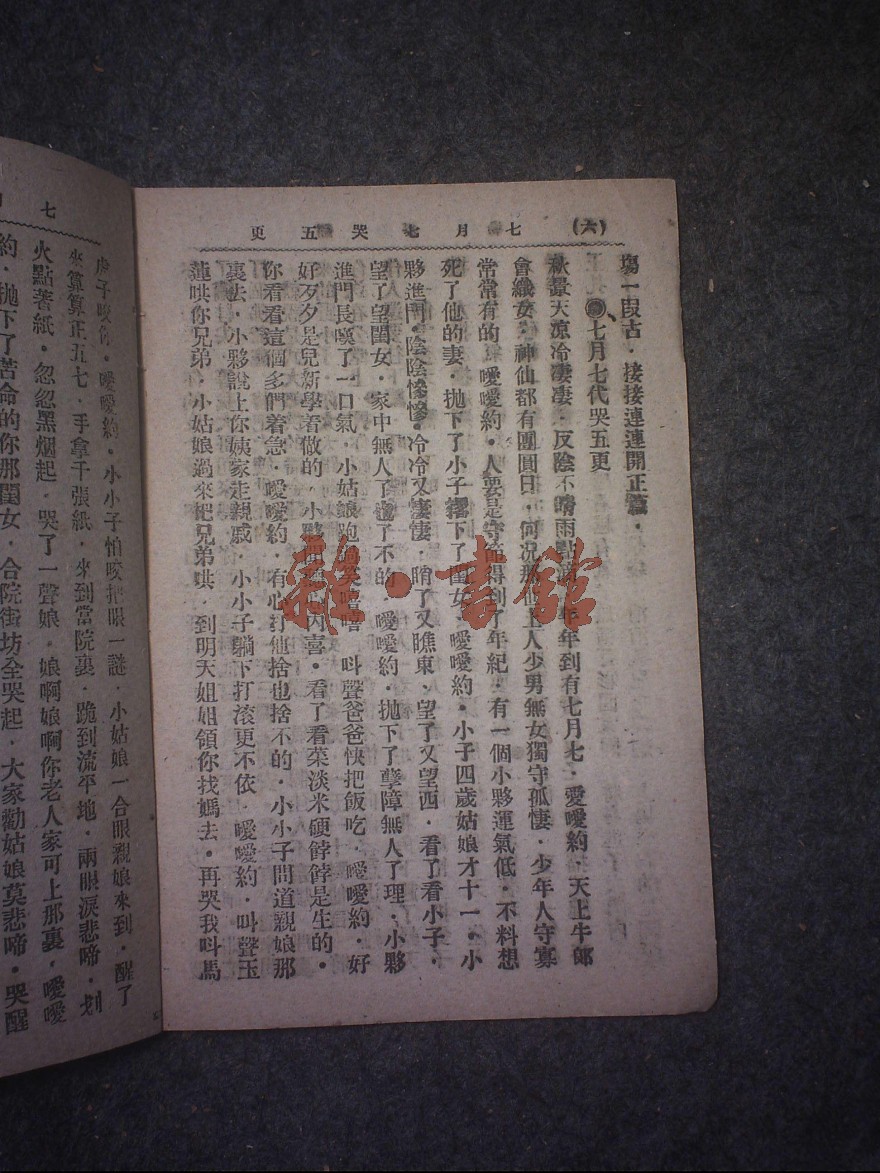 (六) 七月七哭五更
塲一段古．接接連連開正篇．
七月七代哭五更
秋景天凉冷凄凄．反陰不晴雨點滴．年年到有七月七．愛噯約．天上牛郎
會織女．神仙都有團圓日．何况那世上人少男無女獨守孤悽．少年人守寡
常常有的．噯噯約．人要是守節得到了年紀．有一個小夥運氣低．不料想
死了他的妻．拋下了小子撂下了閨女．噯噯約．小子四歲姑娘才十一．小
夥進門．陰陰慘慘．冷冷又悽悽．睄了又瞧東．望了又望西．看了看小子．
望了望閨女．家中無人了也了不的．噯噯約．拋下了孽障無人了理．小夥
進門長嘆了一口氣．小姑娘跑過笑嘻嘻．呌聲爸爸快把飯吃．噯噯約．好
好歹歹是兒新學着做的．小夥聞聽心内喜．看了看菜淡米硬餑餑是生的．
你看看這個多們着急．噯噯約．有心打他捨也捨不的．小小子問道親娘那
裏去．小夥說上你姨家走親戚．小小子躺下打滾更不依．噯噯約．呌聲玉
蓮哄你兄弟．小姑娘過來把兄弟哄．到明天姐姐領你找媽去．再哭我呌馬
雜·書館
七
虎子咬你．噯噯約．小小子怕咬把眼一謎．小姑娘一合眼親娘來到．醒了
來算算正五七．手拿千張紙．來到當院裏．跪到流平地．兩眼淚悲啼．划
火點著紙．忽忽黑烟起．哭了一聲娘．娘啊娘啊你老人家可上那裏．噯噯
約．拋下了苦命的你那閨女．合院街坊全哭起．大家勸姑娘莫悲啼．哭醒